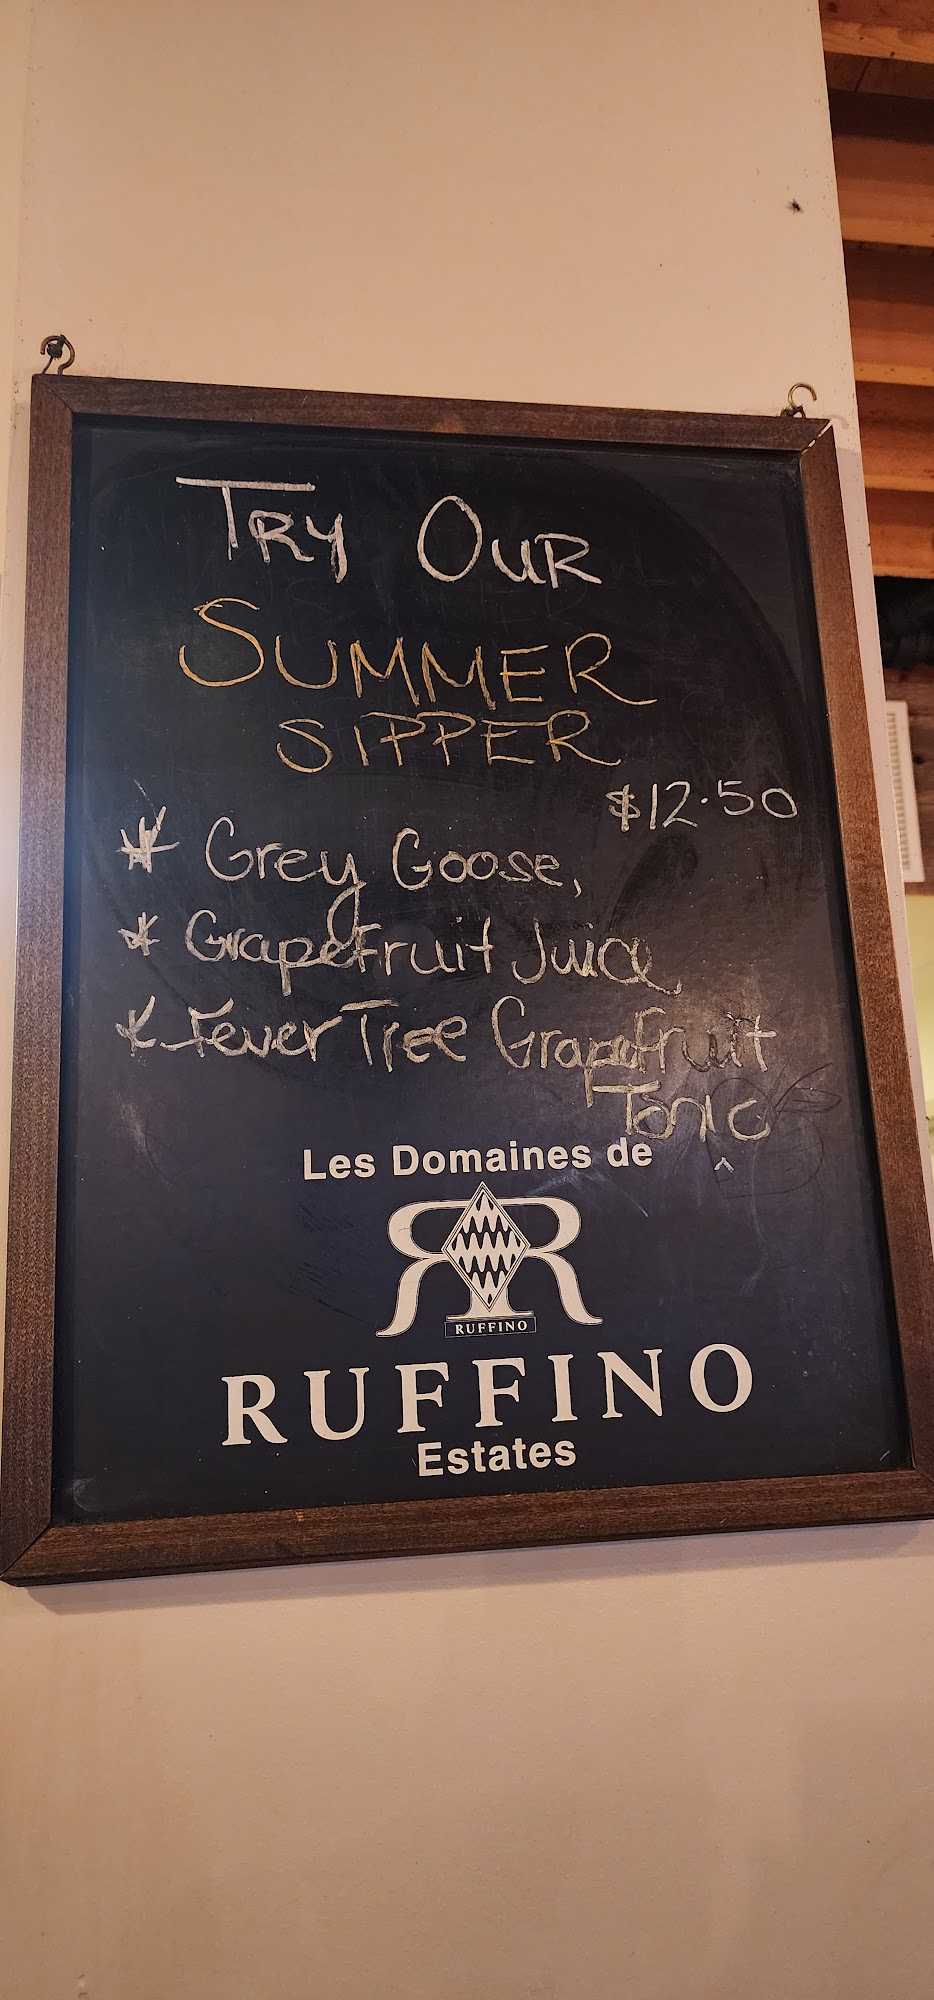 TRY OUR
SUMMER
SIPPER
$12.50
* Grey Goose,
* GrapeFruit Juice
* Fever Tree GrapeFruit
Tonic
Les Domaines de
RUFFINO
RUFFINO
Estates